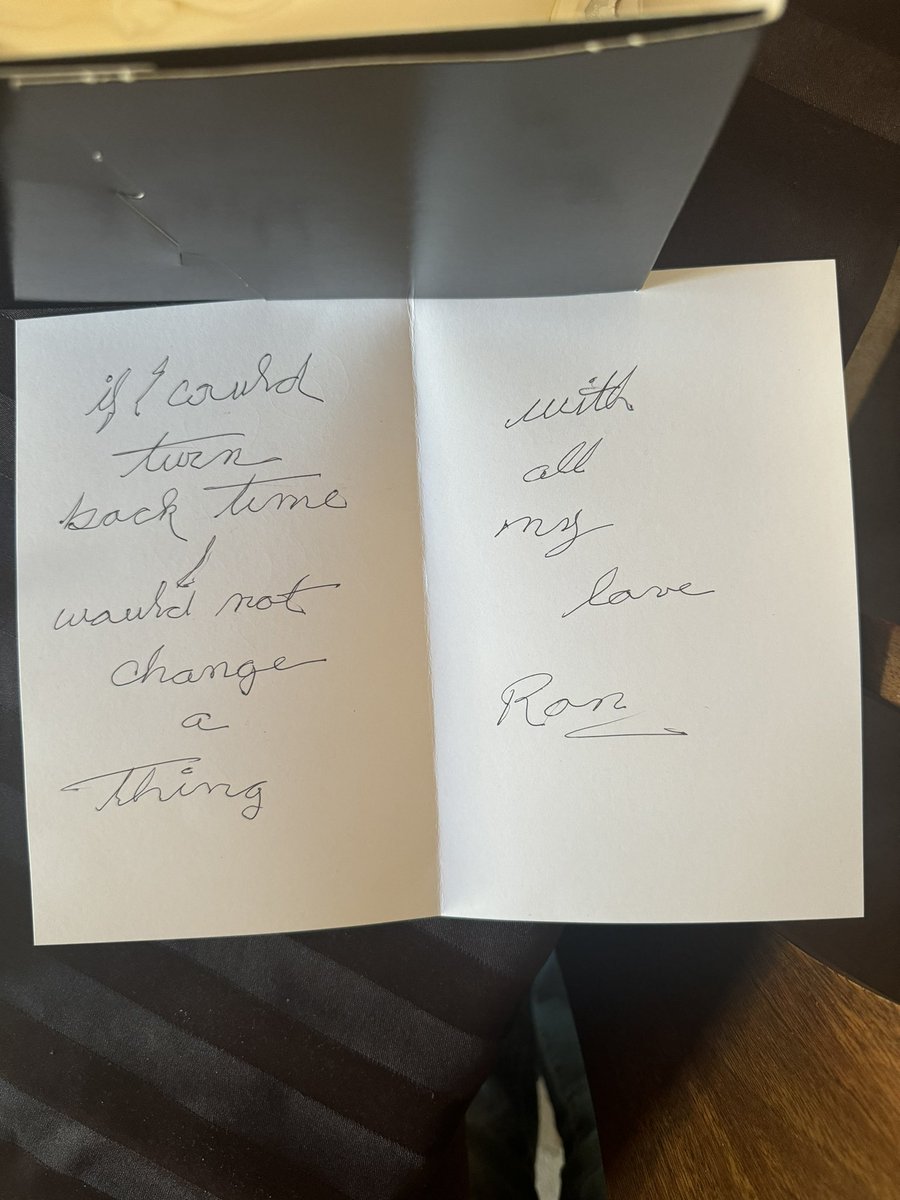 if I could
turn
back time
I
would not
change
a
Thing
with
all
my
love
Ron